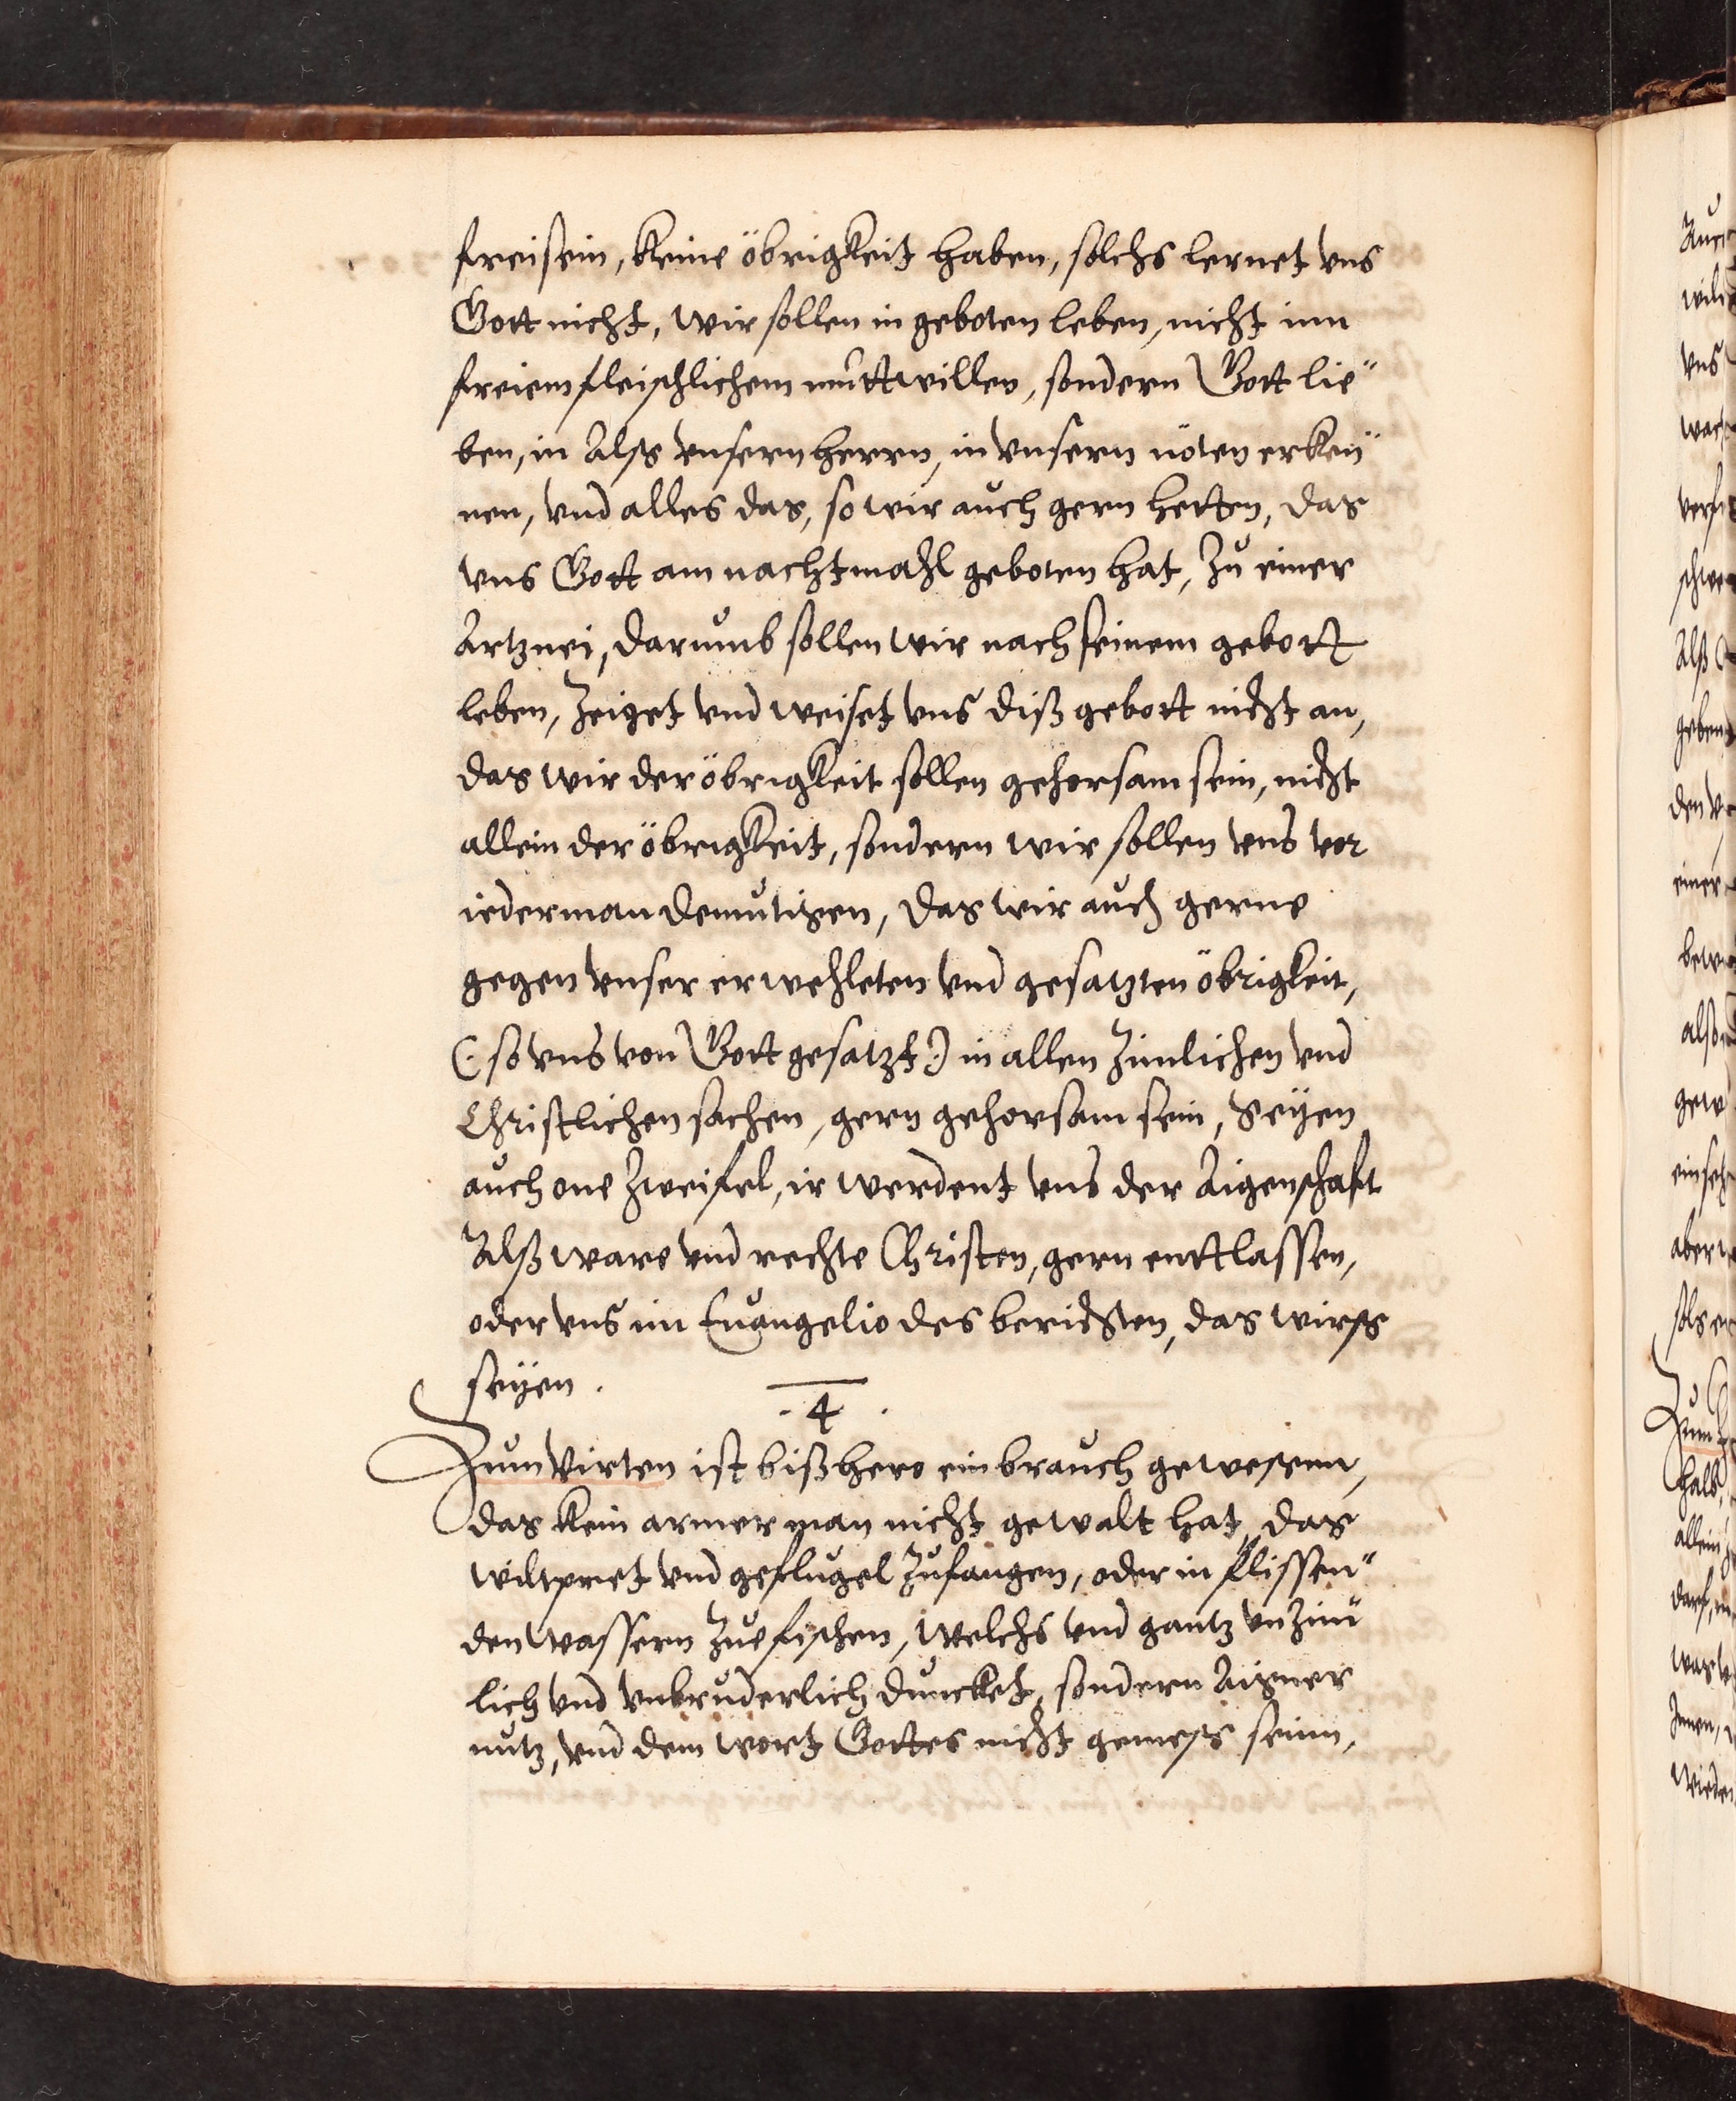 freisein, keine öbrigkeit haben, solchs lernet vns
Gott nicht, wir sollen in geboten leben, nicht inn
freiem fleischlichem muttwillen, sondern Gott lie"
ben, in Alss vnsern herrn, in vnsern nöten erken"
nen, vnd alles das, so wir auch gern hetten, das
vns Gott am nachtmahl geboten hat, zu einer
Artznei, darumb sollen wir nach seinem gebott
leben, zeiget vnd weiset vns diß gebott nicht an,
das wir der öbrigkeit sollen gehorsam sein, nicht
allein der öbrigkeit, sondern wir sollen vns vor
iederman demutigen, das wir auch gerne
gegen vnser erwehleten vnd gesatzten öbrigkeit,
(: so vns von Gott gesatzt :) in allen zimlichen vnd
Christlichen sachen, gern gehorsam sein, Seyen
auch one zweifel, ir werdent vns der Aigenschaft
Alß ware vnd rechte Christen, gern enttlassen,
oder vns im Euangelio des berichten, das wirss
seyen.
. 4 .
Zum Virten ist bißhero ein brauch gewesenn,
das kein armer man nicht gewalt hat, das
wiltpret vnd geflugel zufangen, oder in flissen"
den wassern zue fischen, welchs vnd gantz vnzim"
lich vnd vnbruderlich duncket, sondern Aigner
nutz, vnd dem wort Gottes nicht gemess seinn,
Auch
wilt
vns
verf
schwe
Alß
geben
den
einer
bew
also
gew
einseh
aber
sols
Zum
halb
allein
darf
was
Inen,
wieder